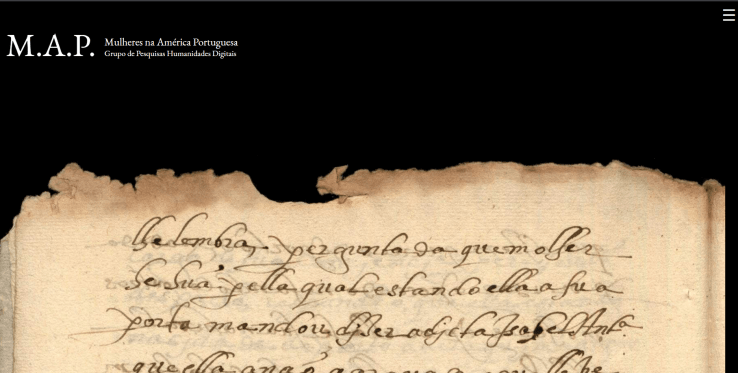 M.A.P.
Mulheres na América Portuguesa
Grupo de Pesquisas Humanidades Digitais
lhe lembra, perguntada quem o
pella qual estando ella a sua
porta mandou dizer a djeta Isabel Anta
que ella